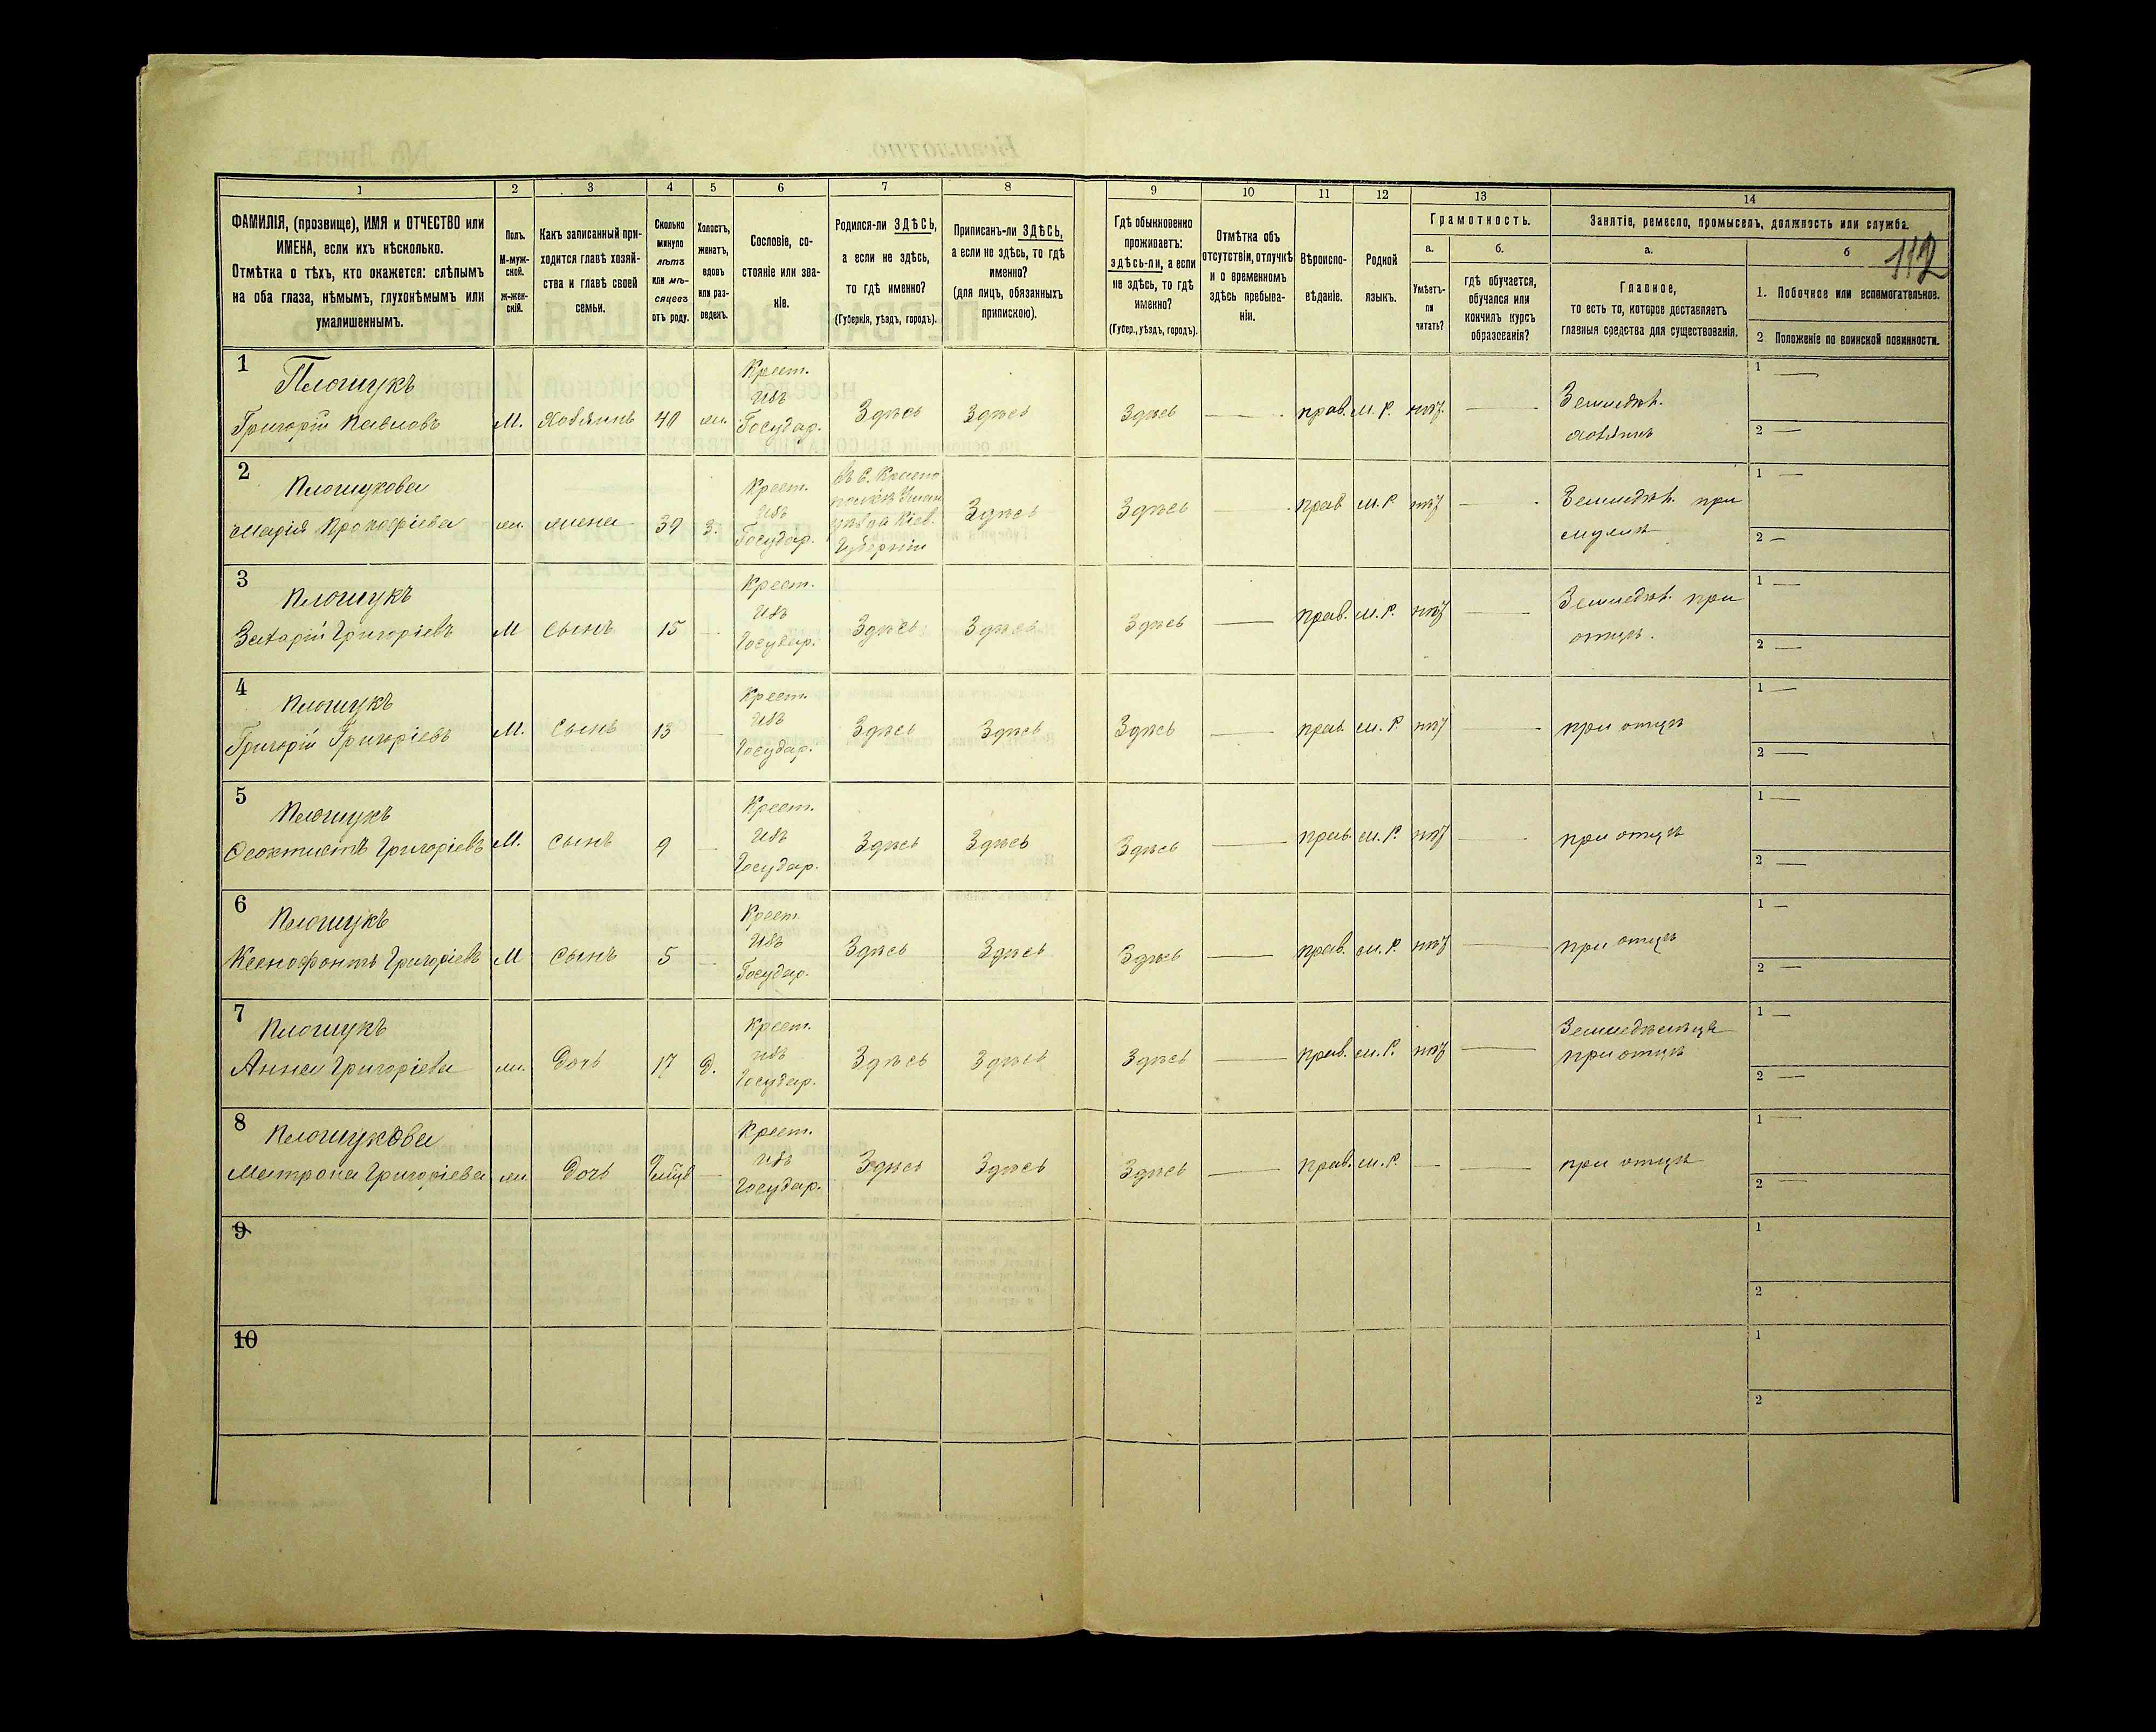 112
1 2 3 4 5 6 7 8 9 10 11 12 13 14
ФАМИЛІЯ, (прозвище), ИМЯ и ОТЧЕСТВО или
ИМЕНА, если ихъ нѣсколько.
Отмѣтка о тѣхъ, кто окажется: слѣпымъ
на оба глаза, нѣмымъ, глухонѣмымъ или
умалишеннымъ.
Полъ.
М-муж-
ской.
ж-жен-
скій.
Какъ записанный при-
ходится главѣ хозяй-
ства и главѣ своей
семьи.
Сколько
минуло
лѣтъ
или мѣ-
сяцевъ
отъ роду.
Холостъ,
женатъ,
вдовъ
или раз-
веденъ.
Сословіе, со-
стояніе или зва-
ніе.
Родился-ли ЗДѢСЬ,
а если не здѣсь,
то гдѣ именно?
(Губернія, уѣздъ, городъ).
Приписанъ-ли ЗДѢСЬ,
а если не здѣсь, то гдѣ
именно?
(для лицъ, обязанныхъ
припискою).
Гдѣ обыкновенно
проживаетъ:
здѣсь-ли, а если
не здѣсь, то гдѣ
именно?
(Губер., уѣздъ, городъ).
Отмѣтка объ
отсутствіи, отлучкѣ
и о временномъ
здѣсь пребыва-
ніи.
Вѣроиспо-
вѣданіе.
Родной
языкъ.
Грамотность.
а.
Умѣетъ-
ли
читать?
б.
гдѣ обучается,
обучался или
кончилъ курсъ
образованія?
Занятіе, ремесло, промыселъ, должность или служба.
а.
Главное,
то есть то, которое доставляетъ
главныя средства для существованія.
б
1. Побочное или вспомогательное.
2. Положеніе по воинской повинности.
1
Площукъ
Григорій Павловъ
М. Хозяинъ 40 ж.
Крест.
изъ
Государ.
Здѣсь Здѣсь Здѣсь — прав. м. р. нѣт —
Земледѣл.
хозяинъ
1 —
2 —
2
Площукова
Марія Прокофіева
ж. жена 39 З.
Крест.
изъ
Государ.
Кіев.
Губерніи
Здѣсь Здѣсь — прав м. р нѣт —
Земледѣл. при
мужѣ
1 —
2 —
3
Площукъ
Захарій Григоріевъ
М сынъ 15 —
Крест.
изъ
Государ.
Здѣсь Здѣсь Здѣсь — прав. м. р. нѣт —
Земледѣл. при
отцѣ.
1 —
2 —
4
Площукъ
Григорій Григоріевъ
М. Сынъ 13 —
Крест.
изъ
Государ.
Здѣсь Здѣсь Здѣсь — прав м. р. нѣт —
при отцѣ
1 —
2 —
5
Площукъ
Феоктистъ Григоріевъ
М. сынъ 9 —
Крест.
изъ
Государ.
Здѣсь Здѣсь Здѣсь — прав. м. р. нѣт —
при отцѣ
1 —
2 —
6
Площукъ
Ксенофонтъ Григоріевъ
М сынъ 5 —
Крест.
изъ
Государ.
Здѣсь Здѣсь Здѣсь — прав. м. р. нѣт —
при отцѣ
1 —
2 —
7
Площукъ
Анна Григоріева
ж. дочь 17 д.
Крест.
изъ
Государ.
Здѣсь Здѣсь Здѣсь — прав. м. р. нѣт —
Земледѣлица
при отцѣ
1 —
2 —
8
Площукова
Матрона Григоріева
ж. дочь —
Крест.
изъ
Государ.
Здѣсь Здѣсь Здѣсь — прав. м. р. — —
при отцѣ
1 —
2 —
9
1
2
10
1
2